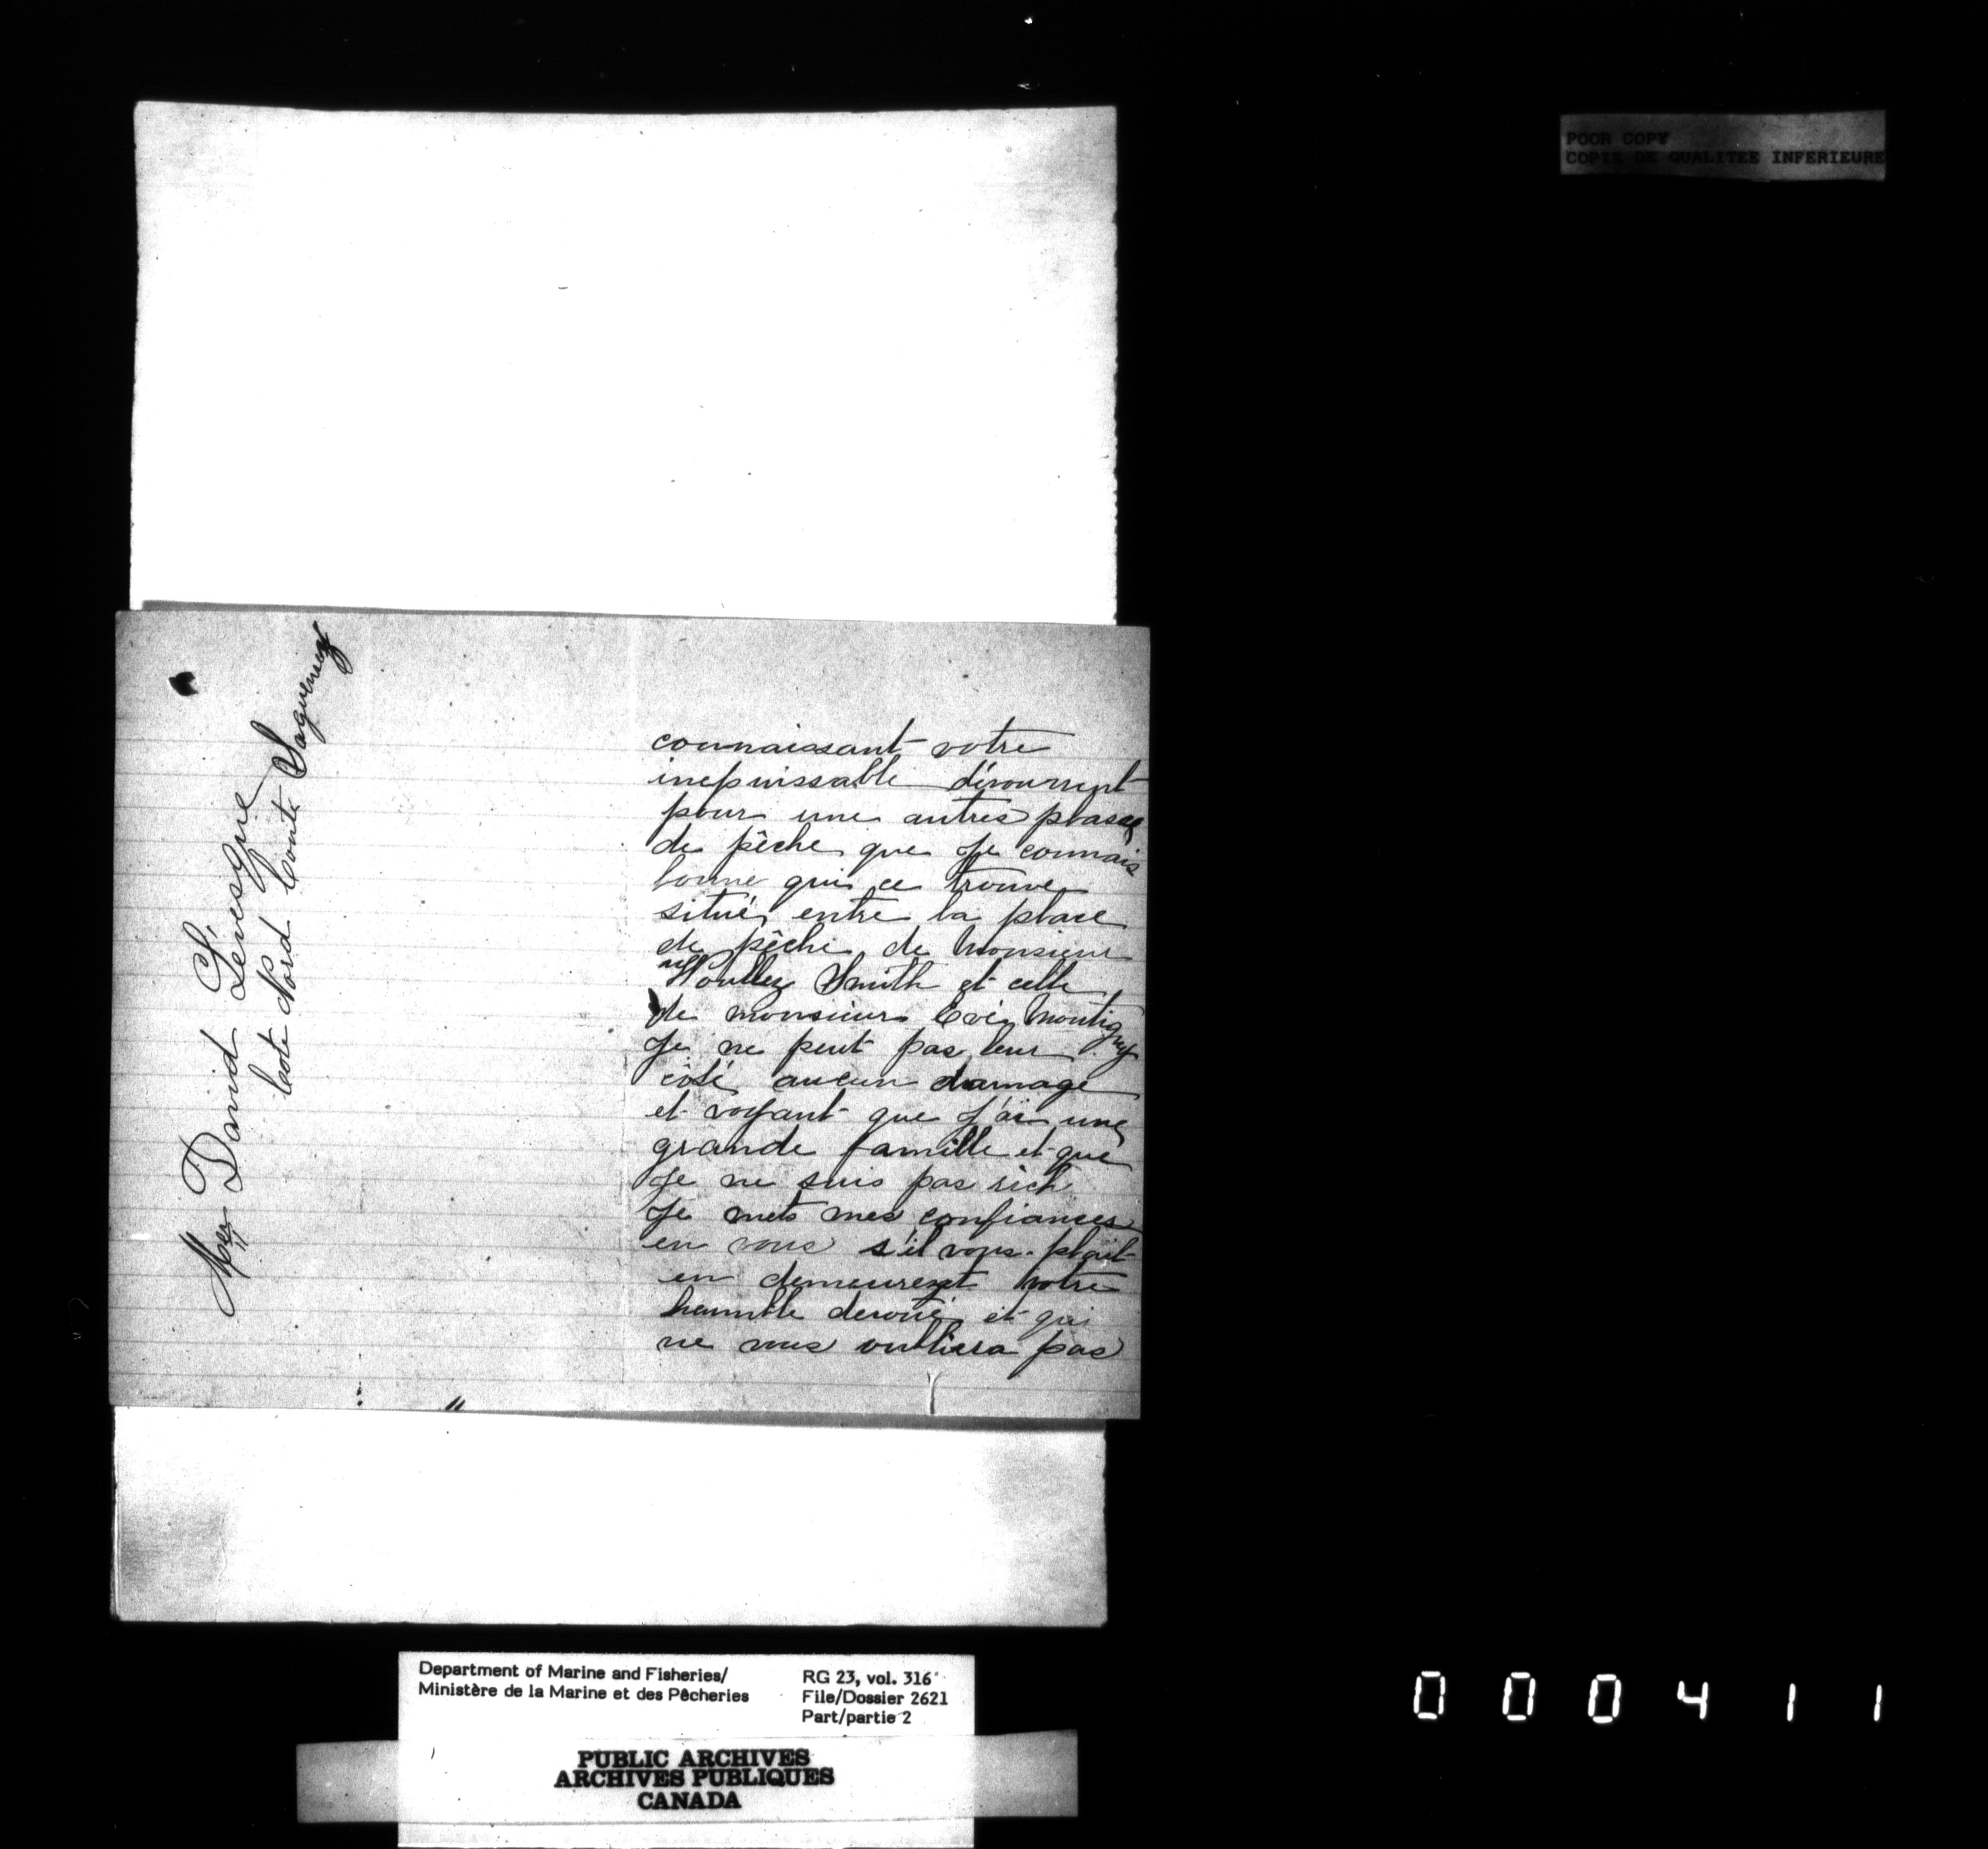 connaissant votre
inepuissable dévoument
pour une autres plasce
de pêche que Je connais
bonne qui ce trouve
situé entre la place
de pêche de Monsieur
Smith et celle
de monsieur Montigny
Je ne peut pas leur
côté aucun damage
et voyant que J'ai une
grande famille et que
Je ne suis pas rich
Je mets mes confiances
en vous s'il vous plait
en demeurent votre
humble devoué et qui
ne vous oubliera pas
David Lévesque
Cote Nord Conté Saguenay
POOR COPY
COPIE DE QUALITEE INFERIEURE
Department of Marine and Fisheries/
Ministère de la Marine et des Pêcheries
RG 23, vol. 316
File/Dossier 2621
Part/partie 2
PUBLIC ARCHIVES
ARCHIVES PUBLIQUES
CANADA
000411